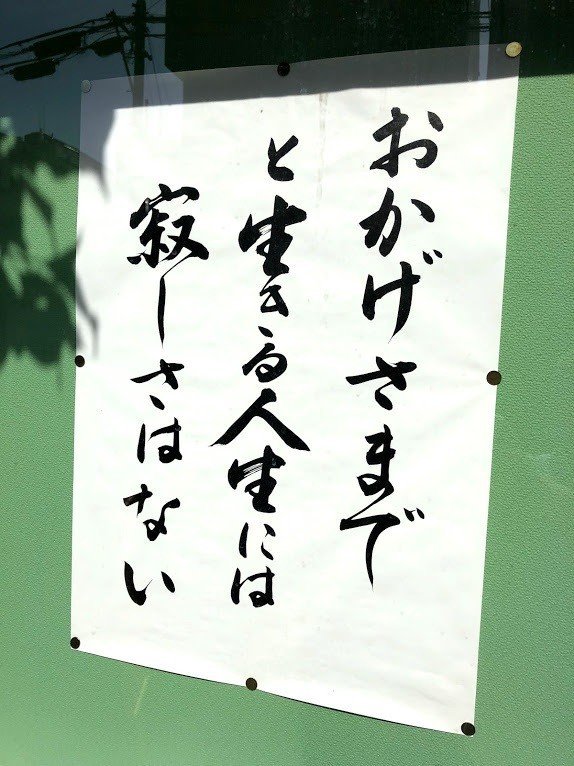 おかげさまで
と生きる人生には
寂しさはない